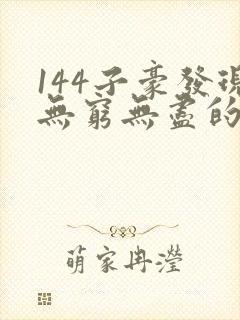 144子豪發現
無窮無盡的
萌家冉瀅